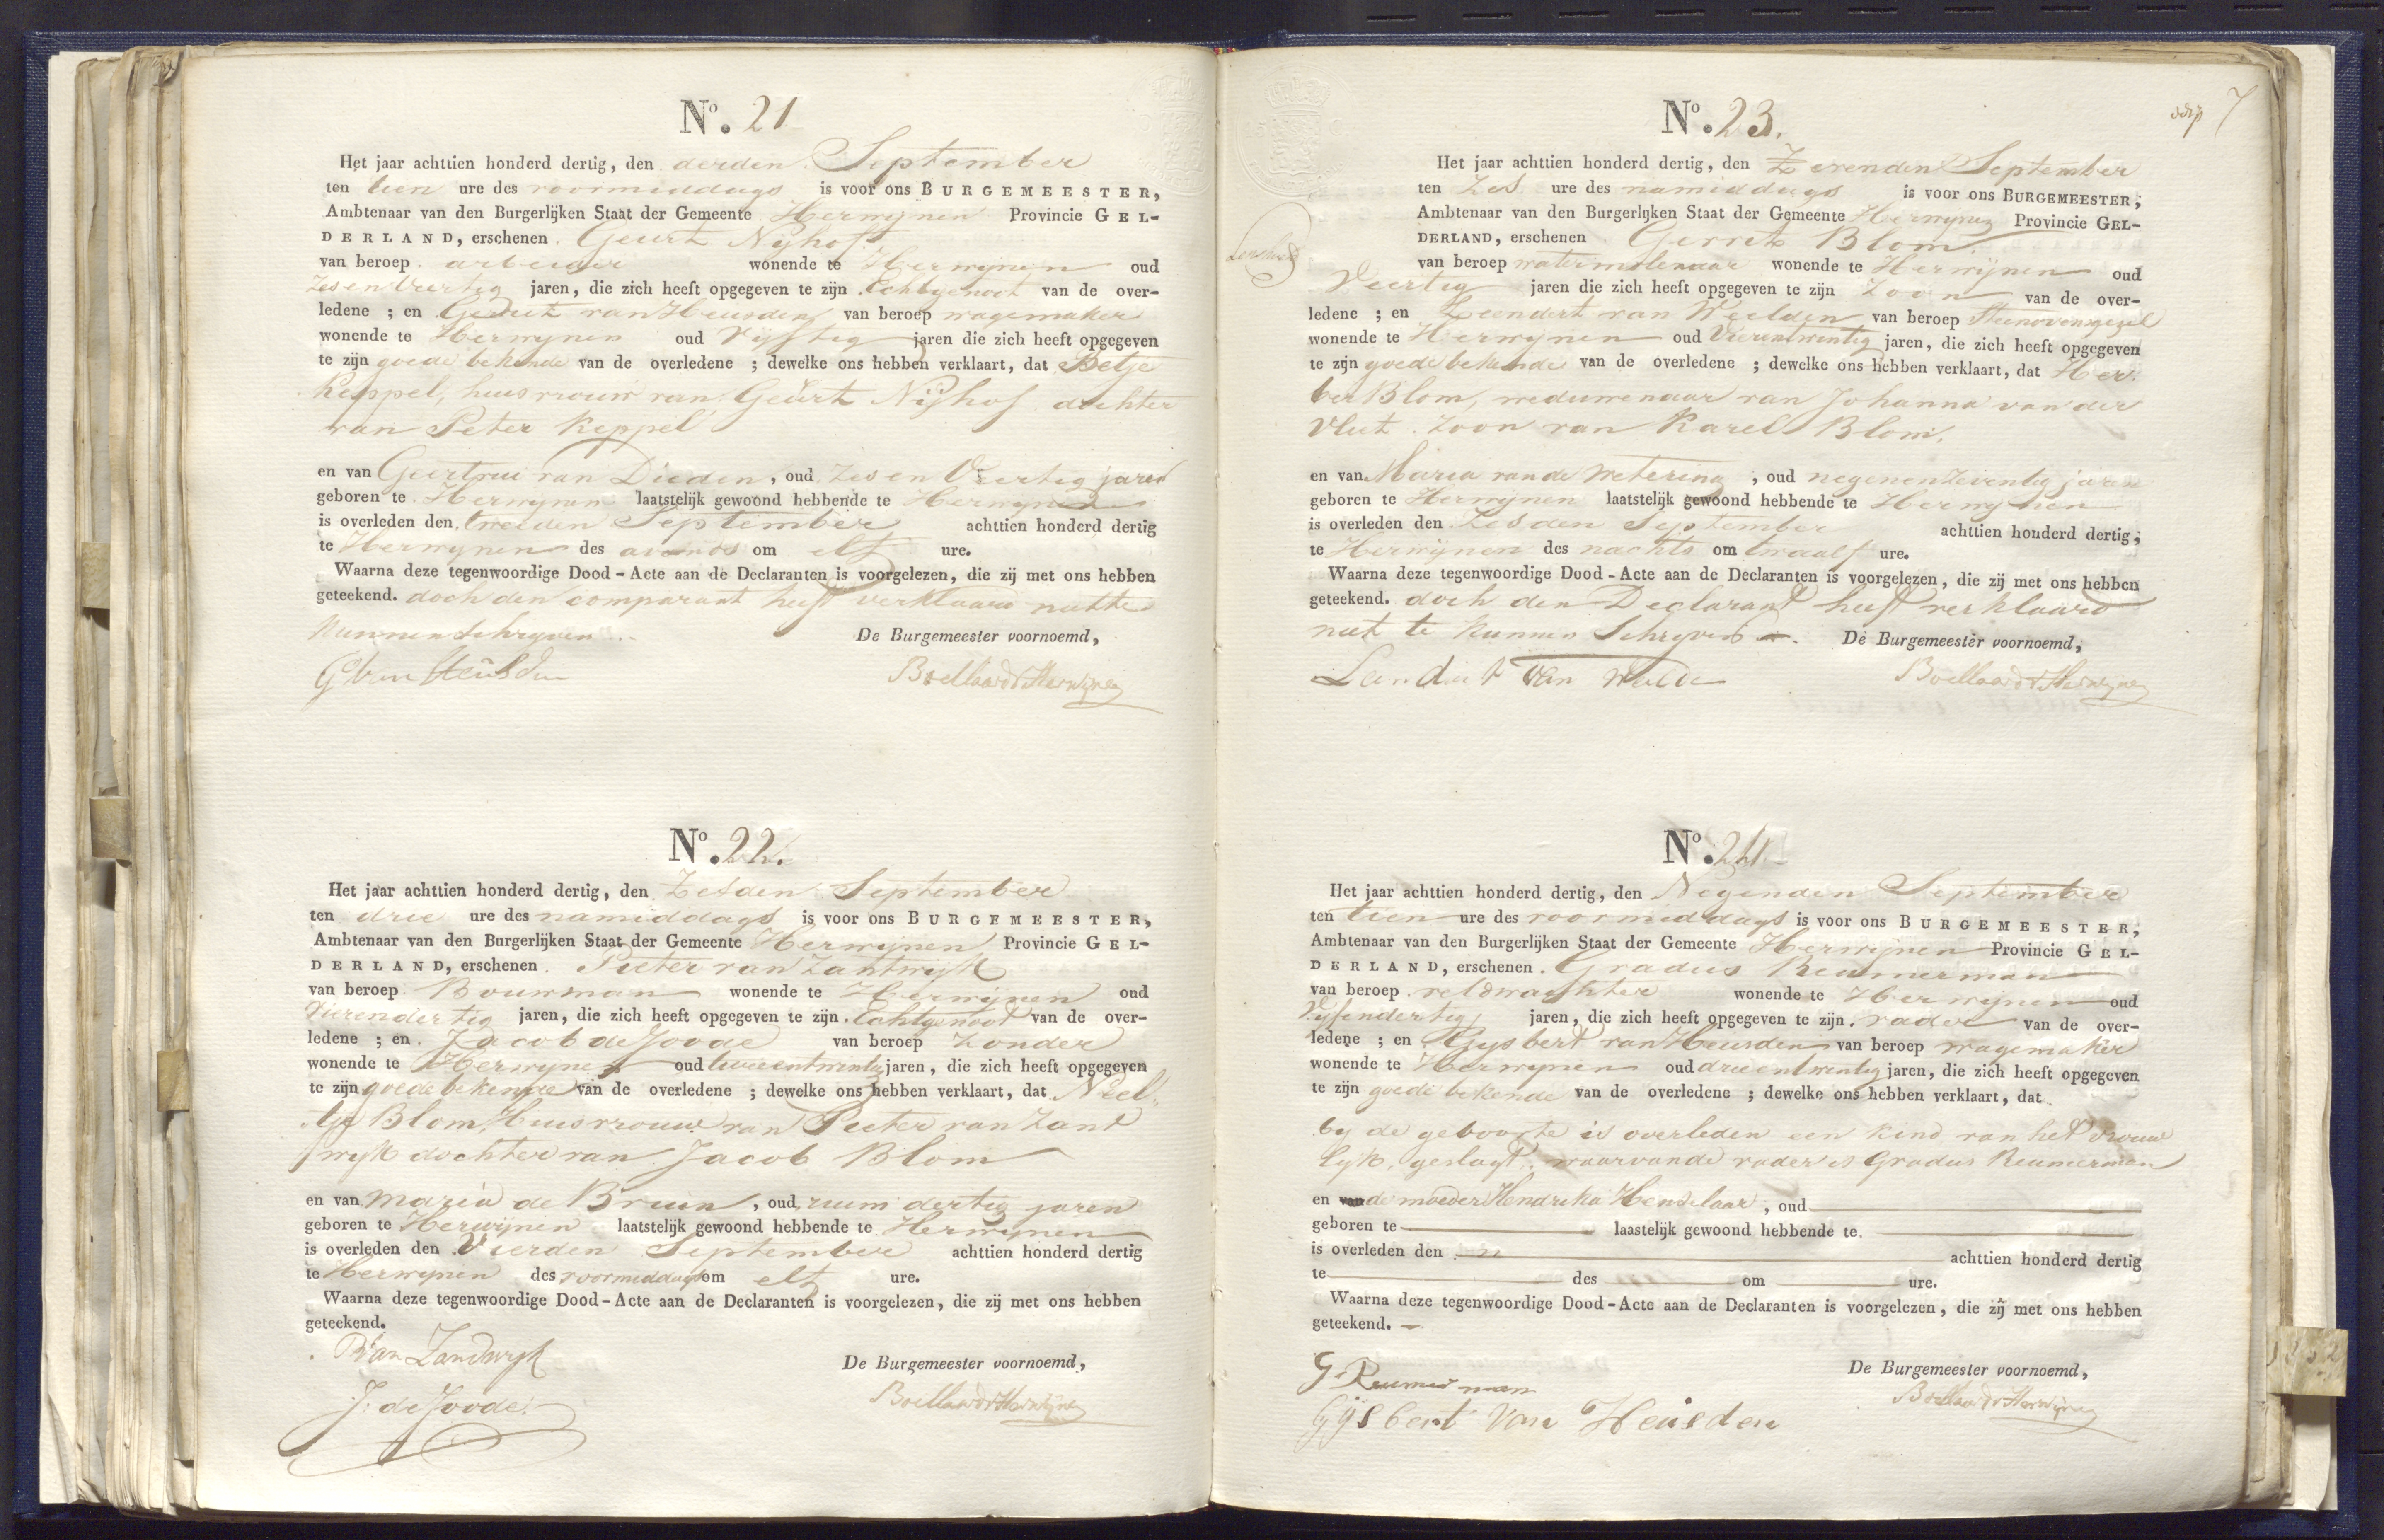 N.º 21
Het jaar achttien honderd dertig, den derden September
ten tien ure des voormiddags is voor ons BURGEMEESTER,
Ambtenaar van den Burgerlijken Staat der Gemeente Herwijnen Provincie GEL-
DERLAND, erschenen. Geurt Nijhof
van beroep. arbeider wonende te Herwijnen oud
Zes en Veertig jaren, die zich heeft opgegeven te zijn. Echtgenoot van de over-
ledene ; en van Heusden van beroep wagemaker
wonende te Herwijnen oud Vijftig jaren die zich heeft opgegeven
te zijn goede bekende van de overledene ; dewelke ons hebben verklaart, dat Betje
Keppel, huisvrouw van Geurt Nijhof dochter
van Peter Keppel
en van Geertrui van Dieden, oud Zes en Veertig jaren
geboren te Herwijnen laatstelijk gewoond hebbende te Herwijnen
is overleden den tweeden September achttien honderd dertig
te Herwijnen des avonds om elf ure.
Waarna deze tegenwoordige Dood-Acte aan de Declaranten is voorgelezen, die zij met ons hebben
geteekend. doch den comparant heeft verklaard niet te
kunnen Schryven.
De Burgemeester voornoemd,
G van Heusden
Boellaard v Herwijnen
N.º 22.
Het jaar achttien honderd dertig, den Zesden September
ten drie ure des namiddags is voor ons BURGEMEESTER,
Ambtenaar van den Burgerlijken Staat der Gemeente Herwijnen Provincie GEL-
DERLAND, erschenen. Pieter van Zantwijk
van beroep Bouwman wonende te Herwijnen oud
Vierendertig jaren, die zich heeft opgegeven te zijn. Echtgenoot van de over-
ledene ; en. Jacob de Joode van beroep Zonder
wonende te Herwynen oud tweeentwintig jaren, die zich heeft opgegeven
te zijn goede bekende van de overledene ; dewelke ons hebben verklaart, dat Neel
tje Blom, Huisvrouw van Pieter van Zant
wijk dochter van Jacob Blom
en van Maria de Bruin, oud ruim dertig jaren
geboren te Herwijnen laatstelijk gewoond hebbende te Herwynen
is overleden den Vierden September achttien honderd dertig
te Herwynen des voormiddags om elf ure.
Waarna deze tegenwoordige Dood-Acte aan de Declaranten is voorgelezen, die zij met ons hebben
geteekend.
P Van Zandwyk
De Burgemeester voornoemd,
J: de Joode.
Boellaard v Herwijnen
7
N.º 23.
Het jaar achttien honderd dertig, den Zevenden September
ten Zes ure des namiddags is voor ons BURGEMEESTER,
Ambtenaar van den Burgerlijken Staat der Gemeente Herwynen Provincie GEL-
DERLAND, erschenen Gerrit Blom
van beroep watermolenaar wonende te Herwijnen oud
Veertig jaren die zich heeft opgegeven te zijn Zoon van de over-
ledene ; en Leendert van Weelden van beroep Steenovensgezel
wonende te Herwynen oud Vierentwintig jaren, die zich heeft opgegeven
te zijn goede bekende van de overledene ; dewelke ons hebben verklaart, dat Her
ber Blom, weduwenaar van Johanna van der
Vliet. Zoon van Karel Blom,
en van Maria van de Wetering, oud negenenzeventig jaren
geboren te Herwynen laatstelijk gewoond hebbende te Herwynen
is overleden den Zesden September achttien honderd dertig,
te Herwijnen des nachts om twaalf ure.
Waarna deze tegenwoordige Dood-Acte aan de Declaranten is voorgelezen, die zij met ons hebben
geteekend. doch den Declarant heeft verklaard
niet te kunnen Schryven. De Burgemeester voornoemd,
Leendert van Welde
Boellaard v Herwijnen
N.º 24
Het jaar achttien honderd dertig, den Negenden September
ten tien ure des voormiddags is voor ons BURGEMEESTER,
Ambtenaar van den Burgerlijken Staat der Gemeente Herwijnen Provincie GEL-
DERLAND, erschenen. Gradus Reumerman
van beroep. veldwachter wonende te Herwynen oud
Vijfendertig jaren, die zich heeft opgegeven te zijn. vader van de over-
ledene ; en Gysbert van Heusden van beroep wagemaker
wonende te Herwynen oud drieentwintig jaren, die zich heeft opgegeven
te zijn goede bekende van de overledene ; dewelke ons hebben verklaart, dat
by de geboorte is overleden een kind van het vrouw
lyk, geslagt, waarvan de vader is Gradus Reumerman
en de moeder Hendrika Henselaar, oud
geboren te laastelijk gewoond hebbende te.
is overleden den achttien honderd dertig
te des om ure.
Waarna deze tegenwoordige Dood-Acte aan de Declaranten is voorgelezen, die zij met ons hebben
geteekend.
De Burgemeester voornoemd,
G Reumerman
Boellaard v Herwijnen
Gysbert van Heusden